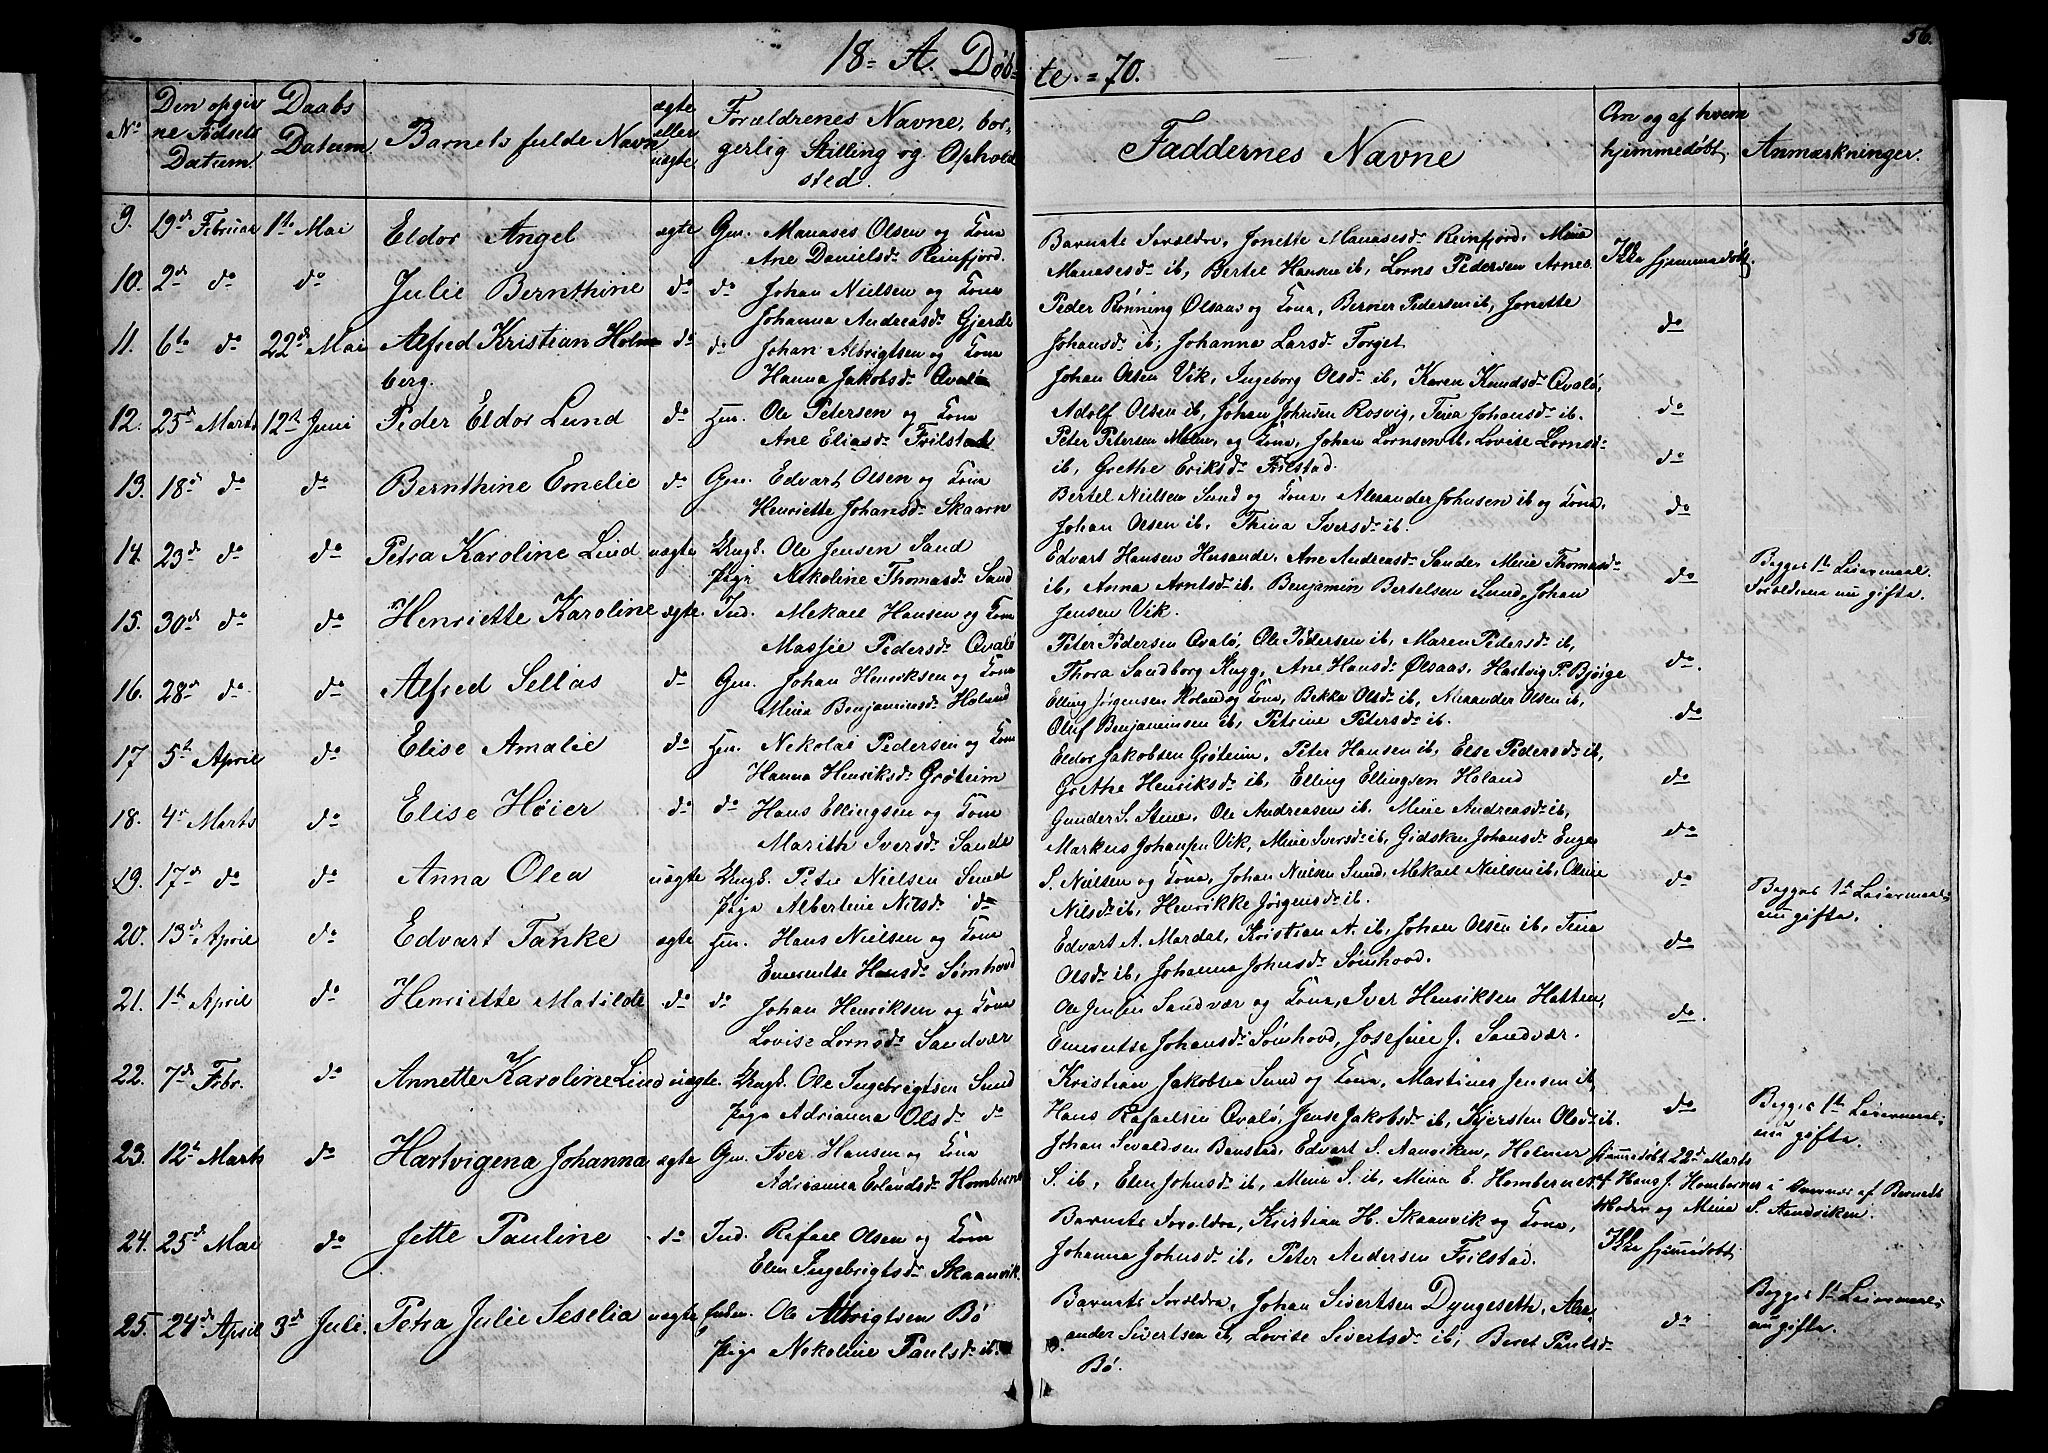 56.
18 = A. Døb=
te. = 70.
No
Den opgiv
ne Fødsels
Datum
Daabs
Datum
Barnets fulde Navn
ægte
eller
uægte
Forældrenes Navne, bor-
gerlig Stilling og Opholds
sted.
Faddernes Navne
Om og af hvem
hjemmedøbt.
Anmærkninger.
9. 19de Februar 1te Mai Eldor Angel ægte Gm. Manases Olsen og Kone
Ane Danielsdr Reinfjord.
Barnets Forældre, Jonette Manasesdr Reinfjord, Meina
Manasesdr ib, Bertil Hansen ib, Lorns Pedersen Arnes
Ikke hjemmedøbt.
10. 2de do do Julie Bernthine do do Johan Nielsen og Kone
Johanna Andreasdr Gjerde
Peder Rönning Ølsaas og Kone, Berner Pedersen ib, Jonette
Johansdr ib, Johanna Larsdr Forget
do
11. 6te do 22de Mai Alfred Kristian Holm
berg. do do Johan Albrigtsen og Kone
Hanna Jakobsdr Qvalø
Johan Olsen Vik, Ingeborg Olsdr ib, Karen Knudsdr Qvalø,
Adolf Olsen ib, Johan Johnsen Rosvig, Teina Johansdr ib.
do
12. 25de Marts 12te Juni Peder Eldor Lund do Hm. Ole Petersen og Kone
Ane Eliasdr Frilstad
Peter Petersen Melen, og Kone, Johan Lornsen ib. Lovise Lornsdr
ib, Grethe Eriksdr Frilstad.
do
13. 18de do do Bernthine Emelie do Gm. Edvart Olsen og Kone
Henriette Johansdr Skaarn
Bertel Nielsen Sund og Kone, Alexander Johnsen ib og Kone,
Johan Olsen ib, Thina Iversdr ib.
do
14. 23de do do Petra Karoline Lind uægte Ungk. Ole Jensen Sand
Pige Nekoline Thomasdr Sand
Edvart Hansen Husande, Ane Andreasdr Sande, Mina Thomasdr
ib, Anna Arntsdr ib, Benjamin Bertelsen Sund, Johan
Jensen Vik.
do
Begges 1te Leiermaal.
Forældrene nu gifte.
15. 30de do do Henriette Karoline ægte Ind. Mekael Hansen og Kone
Massie Pedersdr Qvalø
Peter Pedersen Qvalø, Ole Pedersen ib, Maren Pedersdr ib,
Thora Sandborg Rugg, Ane Hansdr Ølsaas, Hartvig P. Bjørge
do.
16. 28de do do Alfred Sellas do Gm. Johan Henriksen og Kone
Meina Benjaminsdr Holand
Elling Jørgensen Holand og Kone, Bekka Olsdr ib, Alexander Olsen ib,
Oluf Benjaminsen ib, Petrine Petersdr ib.
do
17 5te April do Elise Amalie do Hm. Nekolai Pedersen og Kone
Hanna Henriksdr Grøteim
Eldor Jakobsen Grøteim, Peter Hansen ib, Else Pedersdr ib,
Grethe Henriksdr ib, Elling Ellingsen Holand
do
18. 4de Marts do Elise Høier do do Hans Ellingsen og Kone
Marith Iversdr Sande
Gunder S. Stene, Ole Andreasen ib. Mine Andreasdr ib,
Markus Johansen Vik, Mine Iversdr ib, Gidsken Johansdr Enge
do
19. 17de do do Anna Olea uægte Ungk. Peter Nielsen Sund
Pige Albertine Nilsdr do
S. Nielsen og Kone, Johan Nielsen Sund, Mekael Nielsen ib, Oline
Nilsdr ib, Henrikke Jørgensdr ib.
do
Begges 1te Leiermaal,
nu gifte.
20. 13de April do Edvart Tanke ægte Hm. Hans Nielsen og Kone
Emerentse Hansdr Sømhovd
Edvart A. Mardal, Kristian A. ib, Johan Olsen ib, Teina
Olsdr ib, Johanna Johnsdr Sømhovd.
do
21. 1te April do Henriette Matilde do do Johan Henriksen og Kone
Lovise Lornsdr Sandvær
Ole Jensen Sandvær og Kone, Iver Henriksen Hatten,
Emerentse Johansdr Sømhovd, Josefine J. Sandvær.
do.
22. 7de Febr. do Annette Karoline Lind uægte. Ungk. Ole Ingebrigtsen Sund
Pige Adrianna Olsdr do
Kristian Jakobsen Sund og Kone, Martines Jensen ib,
Hans Rafaelsen Qvalø, Jense Jakobsdr ib, Kjersten Olsdr ib.
do
Begges 1te Leiermaal,
nu gifte.
23. 12te Marts do Hartvigena Johanna ægte Gm. Iver Hansen og Kone
Adrianna Erlandsdr Hombernes
Johan Sevaldsen Banstad, Edvart S. Aanviken, Holmer
S. ib, Elen Johnsdr ib, Meina S. ib, Meina E. Hombernes
Hjemmedøbt 22de Marts
af Hans J. Hombernes i Overvær af Barnets
Moder og Meina S. Aandviken.
24. 25de Mai do Jette Pauline do Ind. Rafael Olsen og Kone
Elen Ingebrigtsdr Skaanvik
Barnets Forældre, Kristian H. Skaanvik og Kone,
Johanna Johnsdr ib, Peter Andersen Frilstad.
Ikke hjemmedøbt
25. 24de April 3de Juli. Petra Julie Seselia uægte Enkem. Ole Albrigtsen Bø
Pige Nekoline Paulsdr ib.
Barnets Forældre, Johan Sivertsen Dyngeseth, Alex-
ander Sivertsen ib, Lovise Sivertsdr ib, Beret Paulsdr
Bø.
do
Begges 1te Leiermaal,
nu gifte.